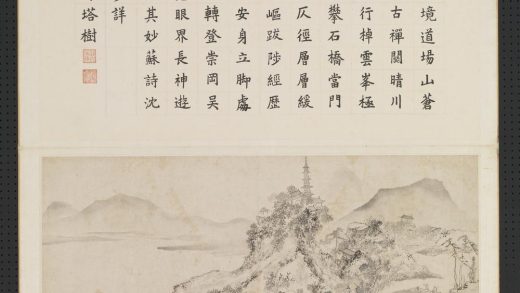 境道場山蒼
古禪關晴川
行掉雲峯極
攀石橋當門
仄徑層層緩
嶇跋陟經歷
安身立脚處
轉登崇岡吴
眼界長神遊
其妙蘇詩沈
詳
塔樹